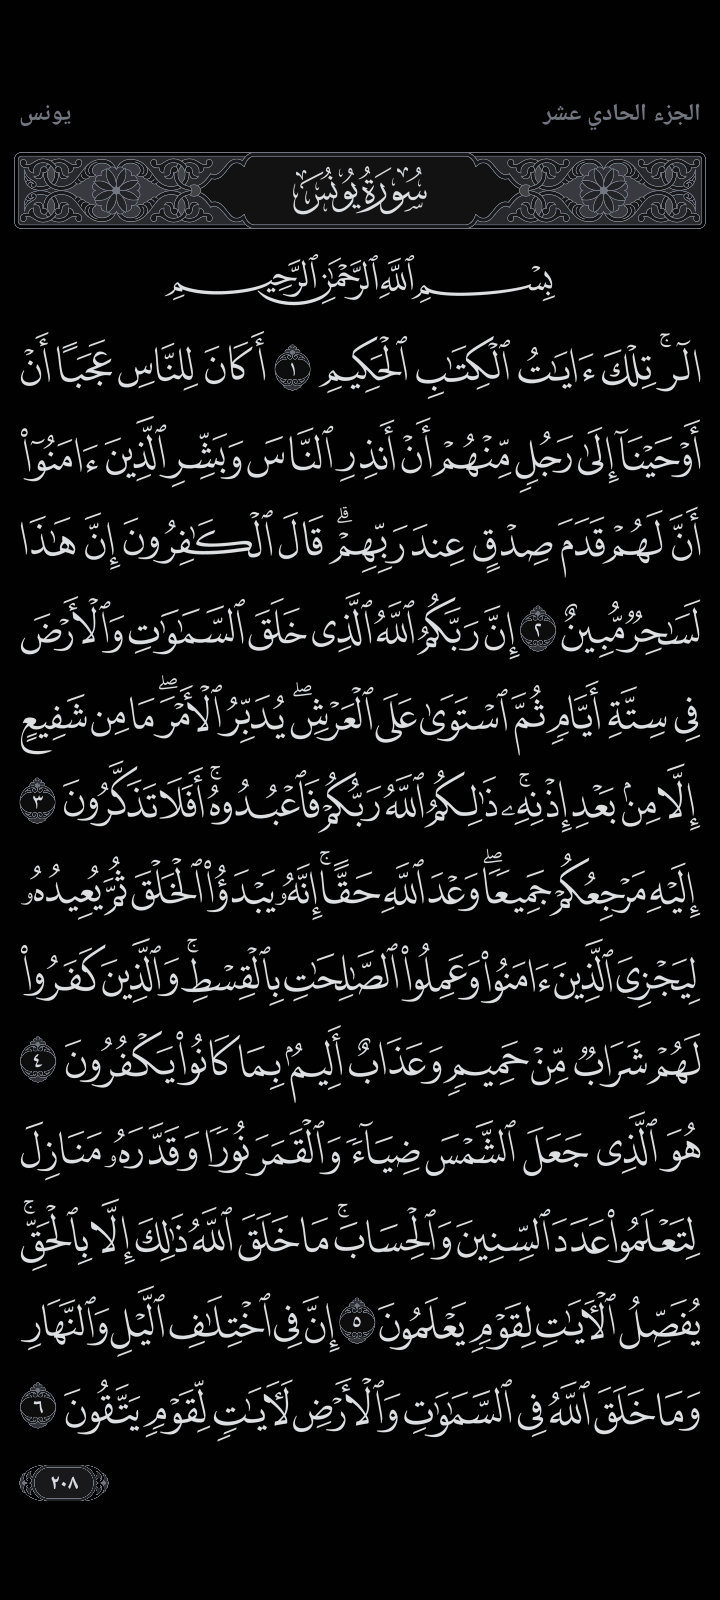 الجزء الحادي عشر
يونس
سُورَةُ يُونُسَ
بِسْمِ ٱللَّهِ ٱلرَّحْمَٰنِ ٱلرَّحِيمِ
الٓرۚ تِلْكَ ءَايَٰتُ ٱلْكِتَٰبِ ٱلْحَكِيمِ ١ أَكَانَ لِلنَّاسِ عَجَبًا أَنْ
أَوْحَيْنَآ إِلَىٰ رَجُلٍ مِّنْهُمْ أَنْ أَنذِرِ ٱلنَّاسَ وَبَشِّرِ ٱلَّذِينَ ءَامَنُوٓا۟
أَنَّ لَهُمْ قَدَمَ صِدْقٍ عِندَ رَبِّهِمْۗ قَالَ ٱلْكَٰفِرُونَ إِنَّ هَٰذَا
لَسَٰحِرٌ مُّبِينٌ ٢ إِنَّ رَبَّكُمُ ٱللَّهُ ٱلَّذِى خَلَقَ ٱلسَّمَٰوَٰتِ وَٱلْأَرْضَ
فِى سِتَّةِ أَيَّامٍ ثُمَّ ٱسْتَوَىٰ عَلَى ٱلْعَرْشِۖ يُدَبِّرُ ٱلْأَمْرَۖ مَا مِن شَفِيعٍ
إِلَّا مِنۢ بَعْدِ إِذْنِهِۦۚ ذَٰلِكُمُ ٱللَّهُ رَبُّكُمْ فَٱعْبُدُوهُۚ أَفَلَا تَذَكَّرُونَ ٣
إِلَيْهِ مَرْجِعُكُمْ جَمِيعًاۖ وَعْدَ ٱللَّهِ حَقًّاۚ إِنَّهُۥ يَبْدَؤُا۟ ٱلْخَلْقَ ثُمَّ يُعِيدُهُۥ
لِيَجْزِىَ ٱلَّذِينَ ءَامَنُوا۟ وَعَمِلُوا۟ ٱلصَّٰلِحَٰتِ بِٱلْقِسْطِۚ وَٱلَّذِينَ كَفَرُوا۟
لَهُمْ شَرَابٌ مِّنْ حَمِيمٍ وَعَذَابٌ أَلِيمٌۢ بِمَا كَانُوا۟ يَكْفُرُونَ ٤
هُوَ ٱلَّذِى جَعَلَ ٱلشَّمْسَ ضِيَآءً وَٱلْقَمَرَ نُورًا وَقَدَّرَهُۥ مَنَازِلَ
لِتَعْلَمُوا۟ عَدَدَ ٱلسِّنِينَ وَٱلْحِسَابَۚ مَا خَلَقَ ٱللَّهُ ذَٰلِكَ إِلَّا بِٱلْحَقِّۚ
يُفَصِّلُ ٱلْءَايَٰتِ لِقَوْمٍ يَعْلَمُونَ ٥ إِنَّ فِى ٱخْتِلَٰفِ ٱلَّيْلِ وَٱلنَّهَارِ
وَمَا خَلَقَ ٱللَّهُ فِى ٱلسَّمَٰوَٰتِ وَٱلْأَرْضِ لَءَايَٰتٍ لِّقَوْمٍ يَتَّقُونَ ٦
٢٠٨